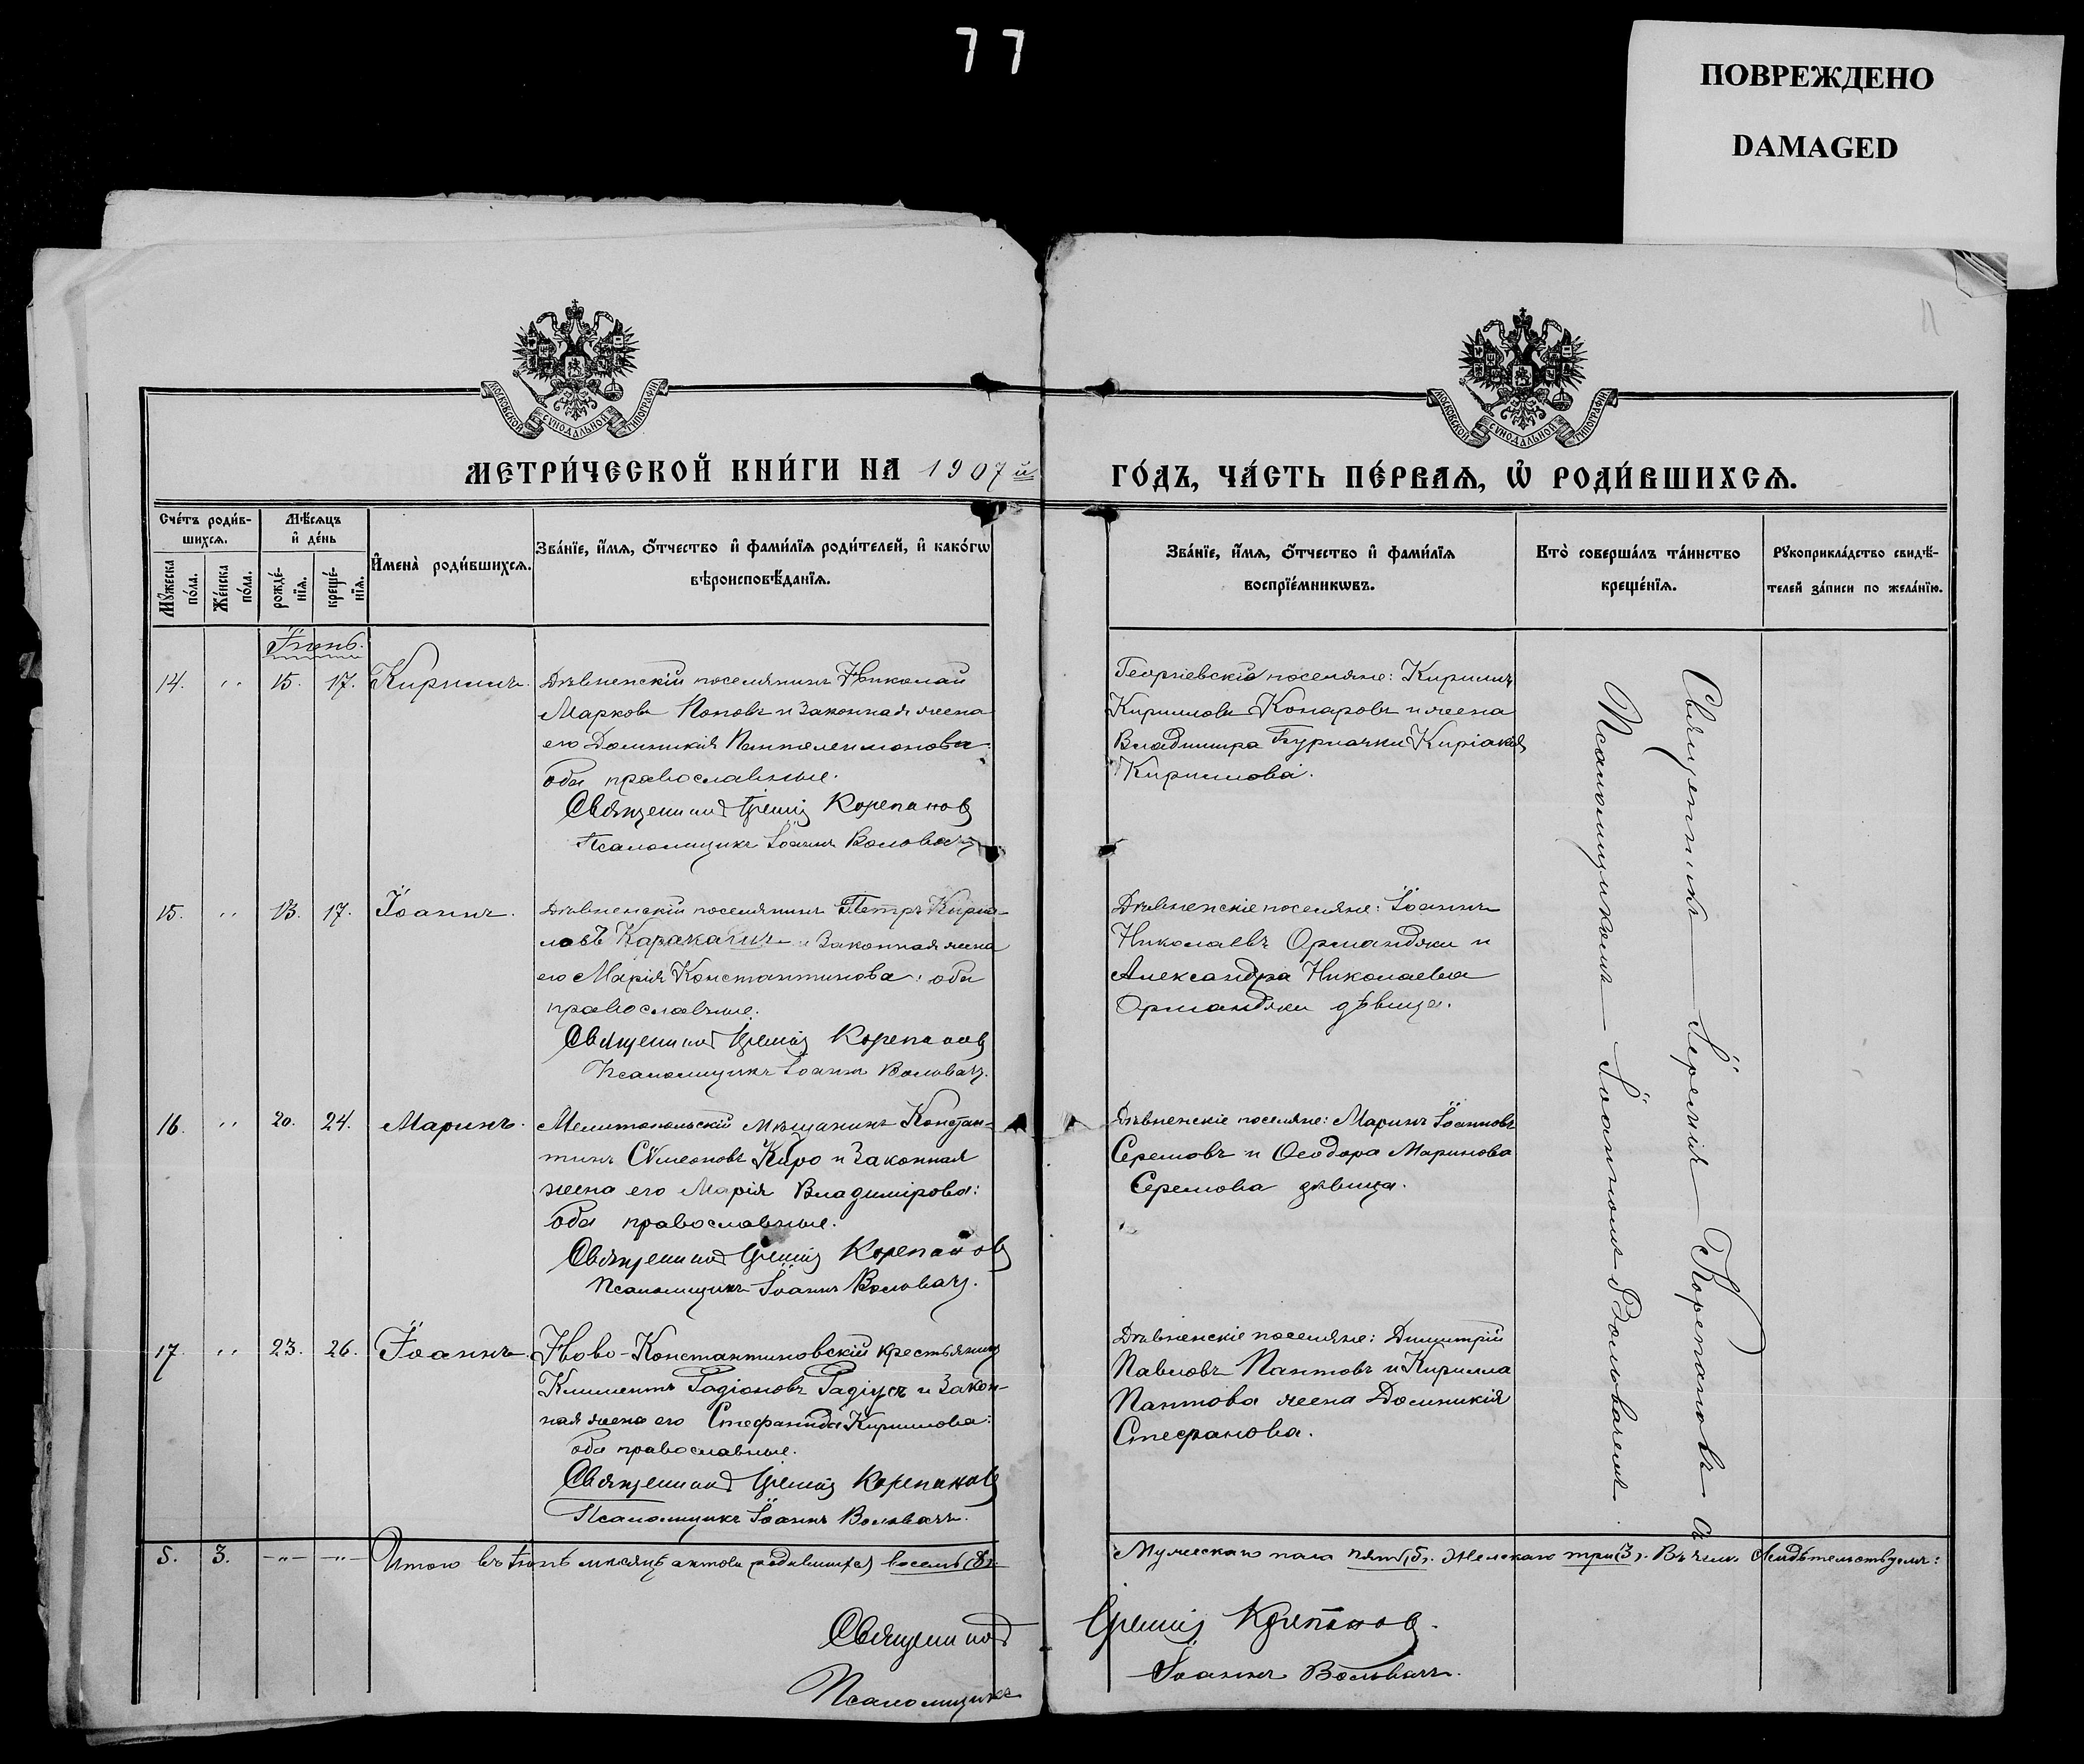 77
ПОВРЕЖДЕНО
DAMAGED
11
МОСКОВСКОЙ СѴНОДАЛЬНОЙ ТИПОГРАФІИ
МОСКОВСКОЙ СѴНОДАЛЬНОЙ ТИПОГРАФІИ
МЕТРИ́ЧЕСКОЙ КНИ́ГИ НА 1907 й
ГО́ДЪ, ЧА́СТЬ ПЕ́РВАѦ, Ѡ҆ РОДИ́ВШИХСѦ.
Сче́тъ роди́в-
шихсѧ.
Мꙋ́жеска по́ла.
Же́нска по́ла.
Мѣ́сѧцъ
и҆ де́нь
рожде́-нїѧ.
креще́-нїѧ.
И҆мена̀ роди́вшихсѧ.
Зва́нїе, и҆́мѧ, ѻ҆́тчество и҆ фами́лїѧ роди́телей, и҆ како́гѡ
вѣроисповѣ́данїѧ.
Зва́нїе, и҆́мѧ, ѻ҆́тчество и҆ фами́лїѧ
воспрїе́мникѡвъ.
Кто̀ соверша́лъ та́инство
креще́нїѧ.
Рꙋкоприкла́дство свидѣ́-
телей за́писи по жела́нїю.
Іюнь.
14. " 15. 17. Кириллъ.
Дѣвненскій поселянинъ Николай
Марковъ Поповъ и законная жена
его Домникія Пантелеимонова
оба православные.
Священникъ Іеремія Корепановъ
Псаломщикъ Іоаннъ Воловачъ
Георгіевскіе поселяне: Кириллъ
Кирилловъ Конаровъ и жена
Владимира Бурлачки Киріакія
Кириллова.
15. " 13. 17. Іоаннъ.
Дѣвненскій поселянинъ Петръ Кирил-
ловъ Каракашъ и законная жена
его Марія Константинова: оба
православные.
Священникъ Іеремія Корепановъ
Псаломщикъ Іоаннъ Воловачъ.
Дѣвненскіе поселяне: Іоаннъ
Николаевъ Орманджи и
Александра Николаева
Орманджи дѣвица.
16. " 20. 24. Маринъ.
Мелитопольскій мѣщанинъ Констан-
тинъ Сѵмеоновъ Киро и законная
жена его Марія Владимірова:
оба православные.
Священникъ Іеремія Корепановъ
Псаломщикъ Іоаннъ Воловачъ.
Дѣвненскіе поселяне: Маринъ Іоанновъ
Серемовъ и Ѳеодора Маринова
Серемова дѣвица.
17. " 23. 26. Іоаннъ.
Ново-Константиновскій крестьянинъ
Климентъ Радіоновъ Радіусъ и закон-
ная жена его Стефанида Кириллова:
оба православные.
Священникъ Іеремія Корепановъ
Псаломщикъ Іоаннъ Воловачъ.
Дѣвненскіе поселяне: Димитрій
Павловъ Пантовъ и Кирилла
Пантова жена Домникія
Стефанова.
Священникъ Іеремія Корепановъ съ
Псаломщикомъ Іоанномъ Воловачемъ.
5. 3. -"- -"- Итого въ Іюнѣ мѣсяцѣ актовъ родившихся восемь (8).
Мужескаго пола пять (5). Женскаго три (3). Въ чемъ свидѣтельствуемъ:
Священникъ Іеремія Корепановъ.
Псаломщикъ Іоаннъ Воловачъ.